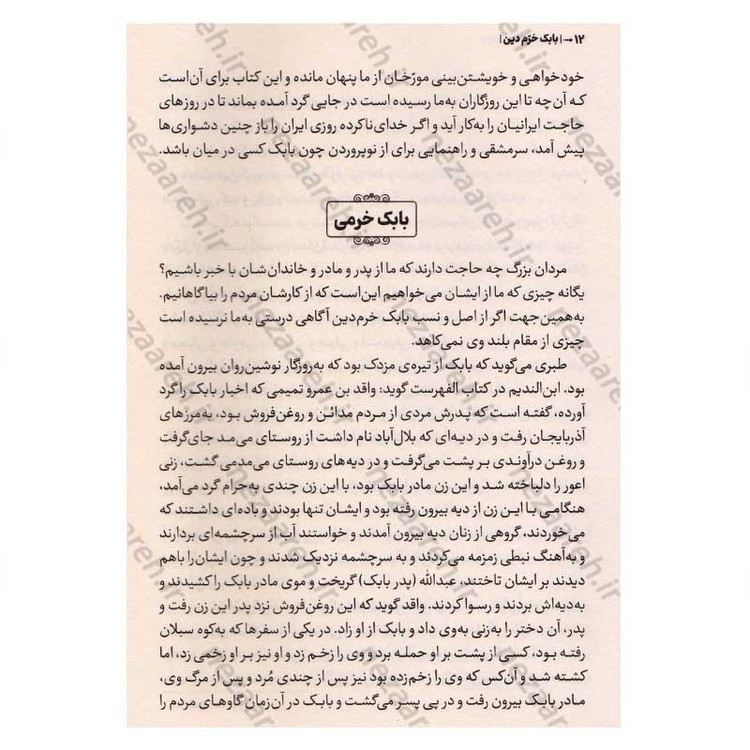 ۱۲ → | بابک خرّم دین |
خودخواهی و خویشتن‌بینی مورّخان از ما پنهان مانده و این کتاب برای آن است
که آن چه تا این روزگاران به‌ما رسیده است در جایی گرد آمده بماند تا در روزهای
حاجت ایرانیان را به‌کار آید و اگر خدای‌ناکرده روزی ایران را باز چنین دشواری‌ها
پیش آمد، سرمشقی و راهنمایی برای از نوپروردن چون بابک کسی در میان باشد.
بابک خرمی
مردان بزرگ چه حاجت دارند که ما از پدر و مادر و خاندان‌شان با خبر باشیم؟
یگانه چیزی که ما از ایشان می‌خواهیم این‌است که از کارشان مردم را بیاگاهانیم.
به‌همین‌جهت اگر از اصل و نسب بابک خرم‌دین آگاهی درستی به‌ما نرسیده است
چیزی از مقام بلند وی نمی‌کاهد.
طبری می‌گوید که بابک از تیره‌ی مزدک بود که به‌روزگار نوشین‌روان بیرون آمده
بود. ابن‌الندیم در کتاب الفهرست گوید: واقد بن عمرو تمیمی که اخبار بابک را گرد
آورده، گفته است که پدرش مردی از مردم مدائن و روغن‌فروش بود، به‌مرزهای
آذربایجان رفت و در دیه‌ای که بلال‌آباد نام داشت از روستای می‌مد جای‌گرفت
و روغن درآوندی بر پشت می‌گرفت و در دیه‌های روستای می‌مدمی گشت، زنی
اعور را دلباخته شد و این زن مادر بابک بود، با این زن چندی به‌حرام گرد می‌آمد،
هنگامی با این زن از دیه بیرون رفته بود و ایشان تنها بودند و باده‌ای داشتند که
می‌خوردند، گروهی از زنان دیه بیرون آمدند و خواستند آب از سرچشمه‌ای بردارند
و به‌آهنگ نبطی زمزمه می‌کردند و به سرچشمه نزدیک شدند و چون ایشان‌را باهم
دیدند بر ایشان تاختند، عبدالله (پدر بابک) گریخت و موی مادر بابک را کشیدند و
به‌دیه‌اش بردند و رسوا کردند. واقد گوید که این روغن‌فروش نزد پدر این زن رفت و
پدر، آن دختر را به‌زنی به‌وی داد و بابک از او زاد. در یکی از سفرها که به‌کوه سبلان
رفته بود، کسی از پشت بر او حمله برد و وی را زخم زد و او نیز بر او زخمی زد، اما
کشته شد و آن‌کس که وی را زخم‌زده بود نیز پس از چندی مُرد و پس از مرگ وی،
مادر بابک بیرون رفت و در پی پسر می‌گشت و بابک در آن‌زمان گاوهای مردم را
nezaareh.ir